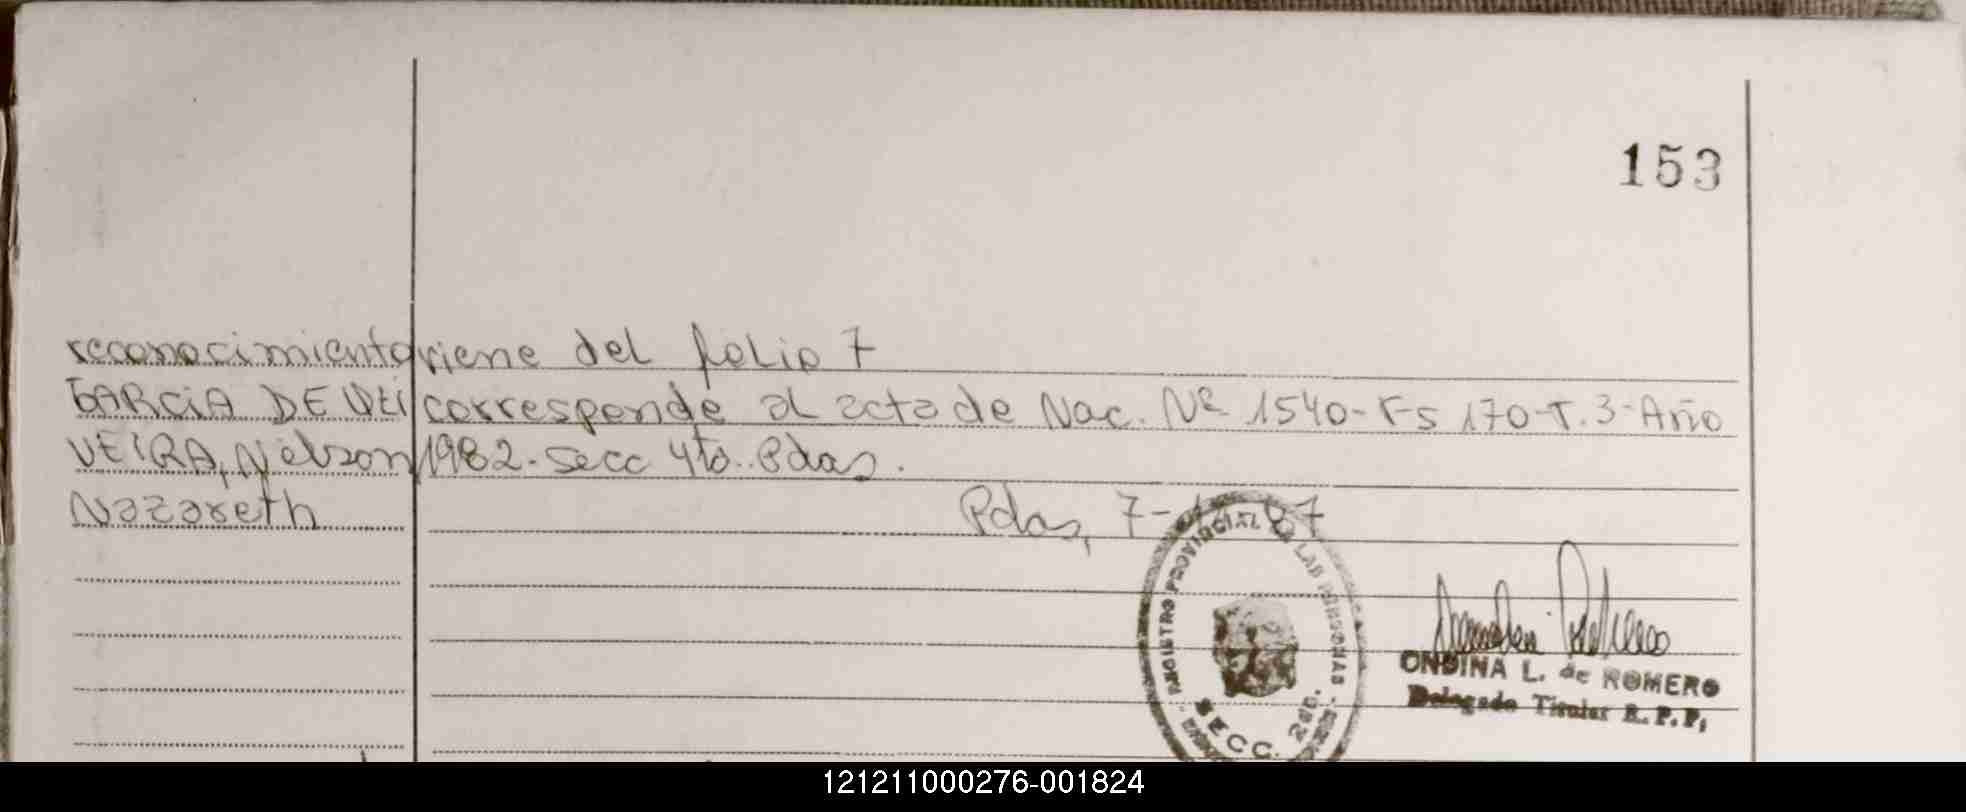 153
reconocimiento viene del folio 7
GARCIA DE OLI corresponde al acta de Nac. Nº 1540-Fs 170-T.3-Año
VEIRA, Nelson 1982-secc 4to. Pdas.
Nazareth
Pdas, 7- 87
REGISTRO PROVINCIAL DE LAS PERSONAS
SECC. 2da.
ONDINA L. de ROMERO
Delegado Titular R.P.P.
121211000276-001824